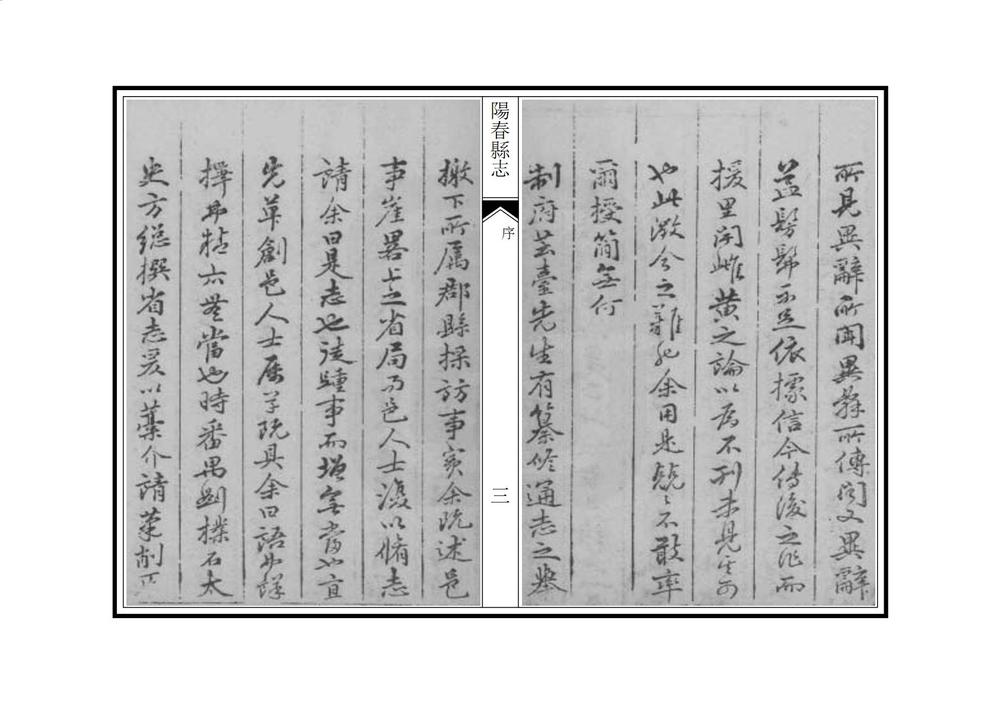 所見異辭所聞異辭所傳聞又異辭
益髣髴而無依據信今傳後之作而
援里閈雌黃之論以為不刊未見其可
也此激今之難也余用是兢兢不敢率
爾授簡無何
制府芸臺先生有纂修通志之舉
陽春縣志
序
三
檄下所属郡縣採訪事實余既述邑
事崖畧上之省局而邑人士復以脩志
請余曰是志也徒踵事而增無當也宜
先草創邑人士屬草既具余曰語焉詳
擇弗精亦無當也時番禺劉樸石太
史方總撰省志爰以藁介請筆削正